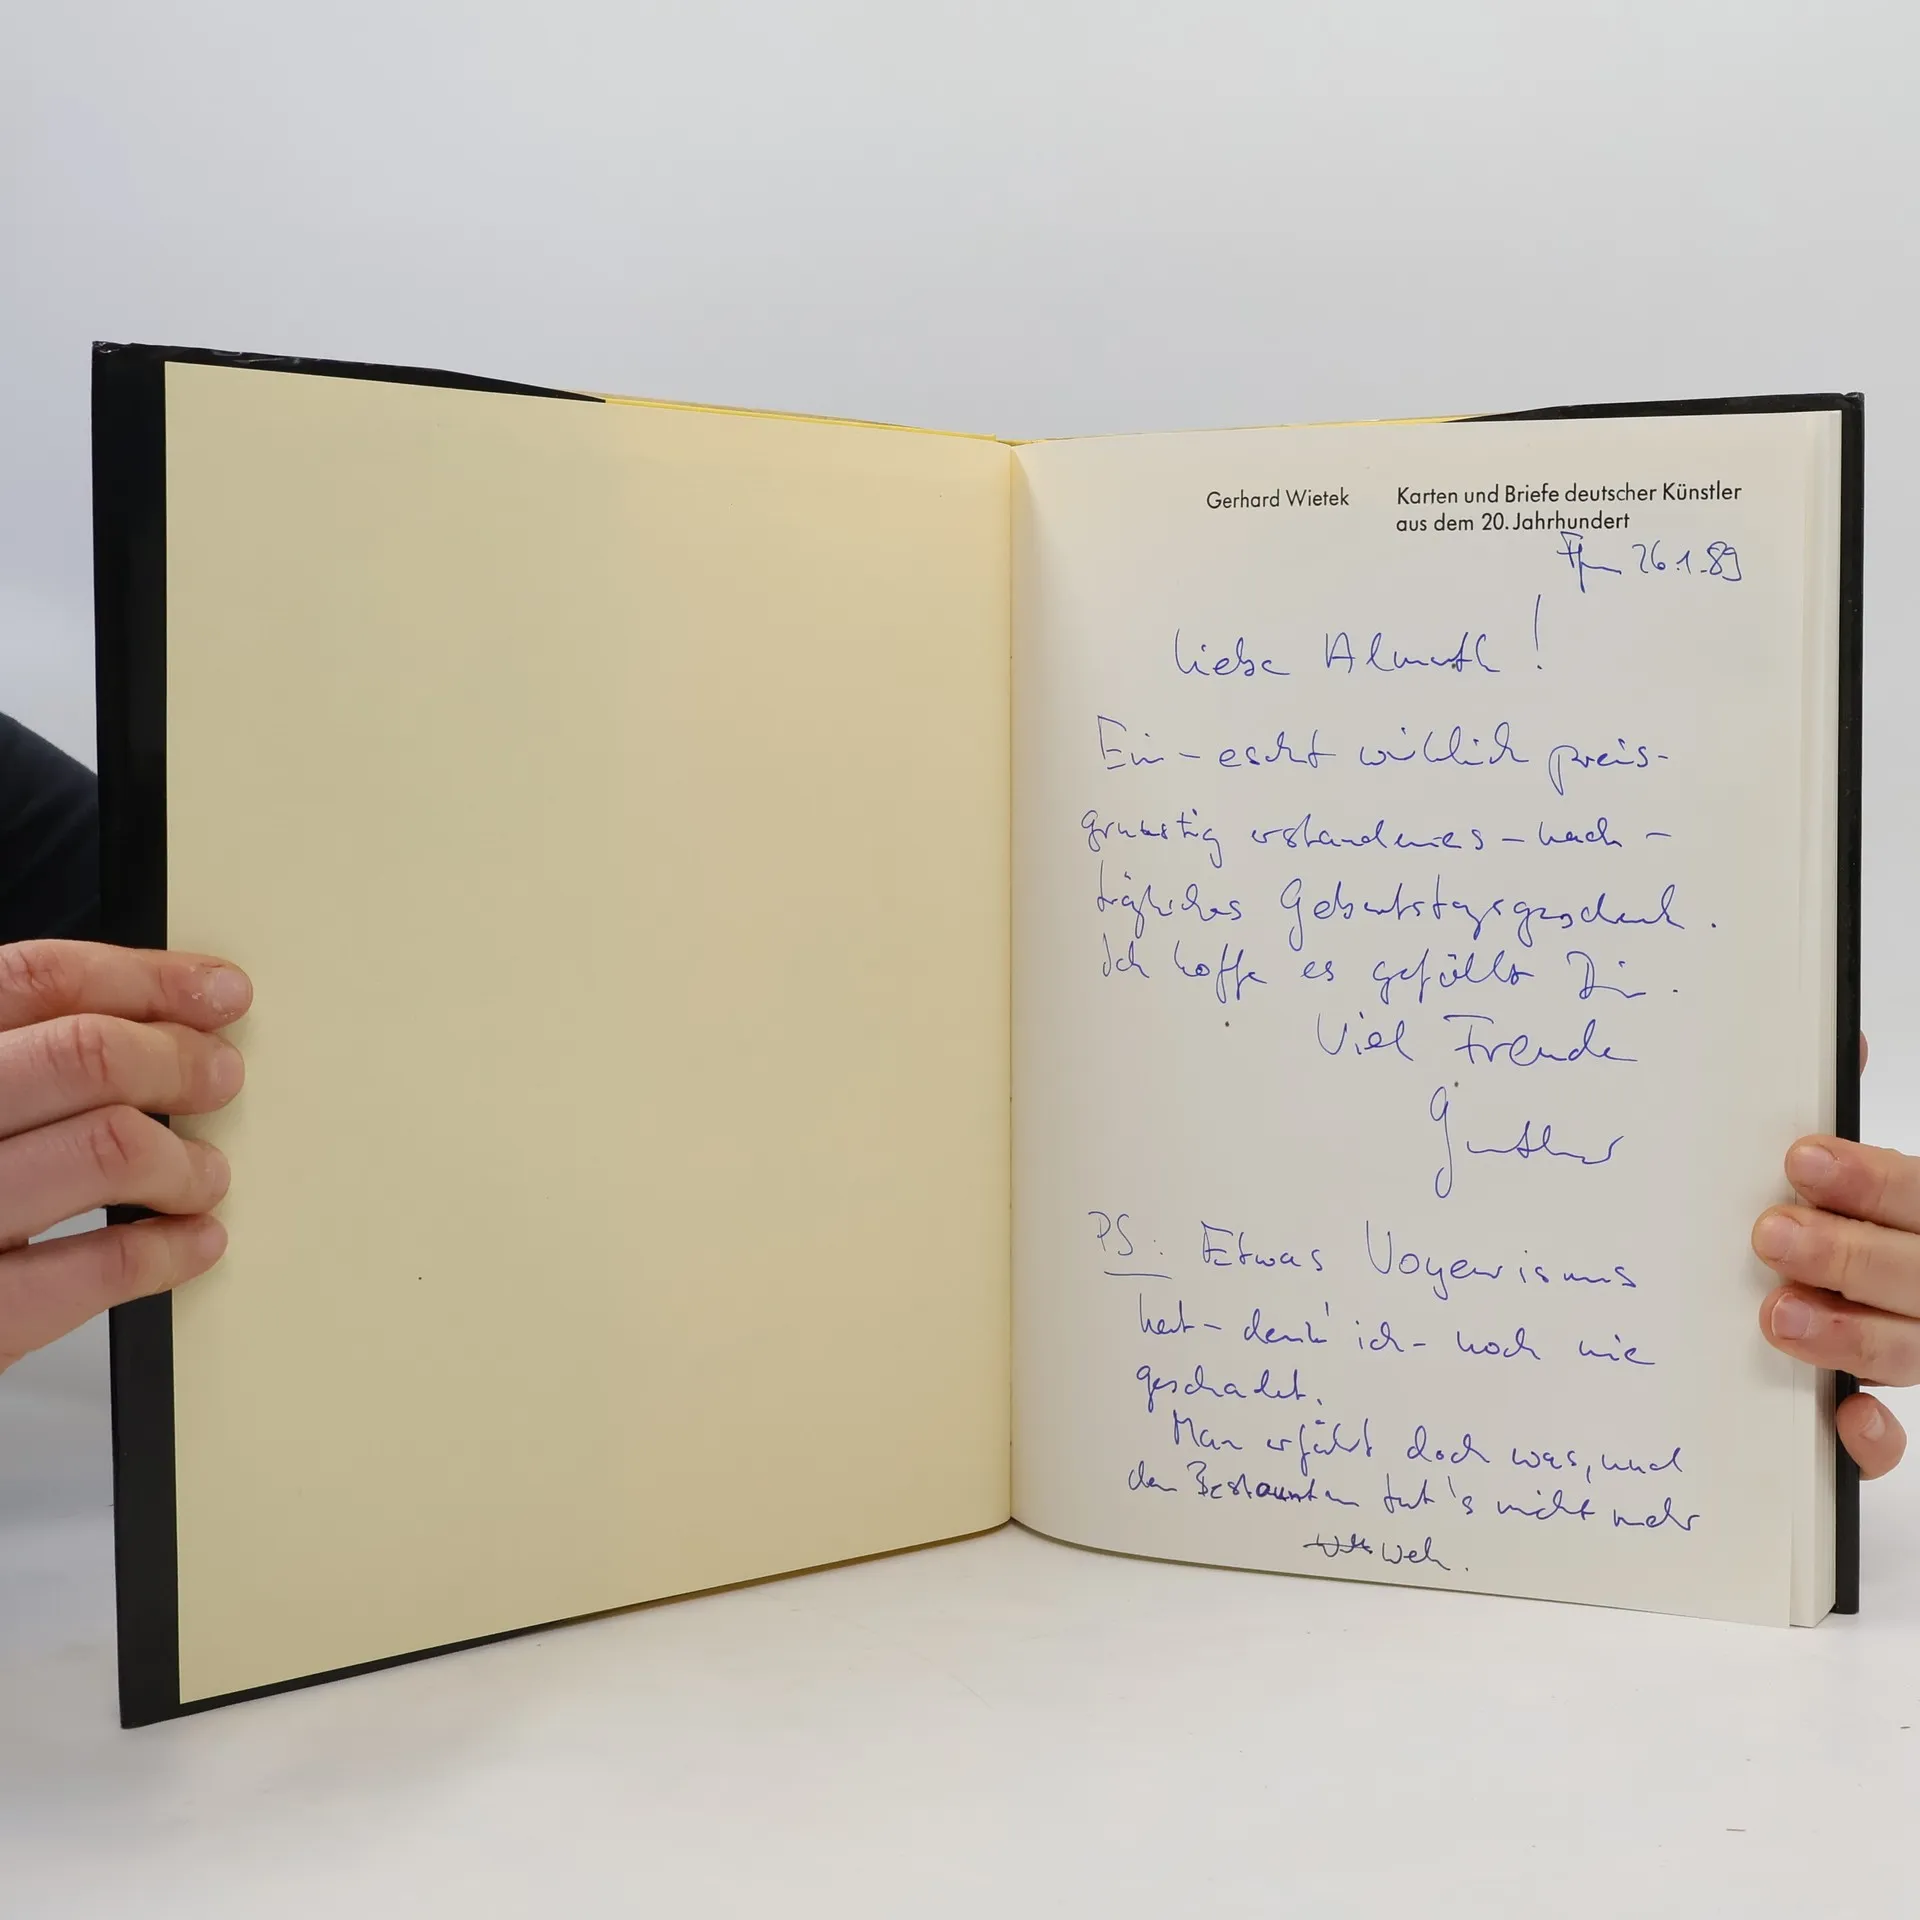 Gerhard Wietek
Karten und Briefe deutscher Künstler
aus dem 20. Jahrhundert
Ffm 26.1.89
Liebe Almuth!
Ein - echt wirklich preis-
grünstig erstandenes - nach -
trägliches Geburtstagsgeschenk.
Ich hoffe es gefällt Dir.
Viel Freude
Günther
PS: Etwas Voyeurismus
hat - denk' ich - noch nie
geschadet.
Man erfährt doch was, und
den Bestaunten tut's nicht mehr
weh.